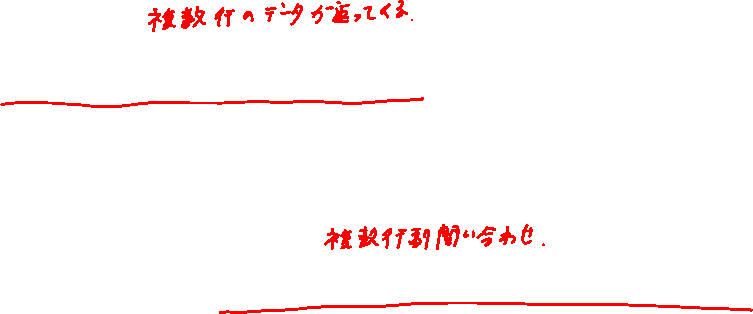 複数行のデータが返ってくる.
複数行副問い合わせ.